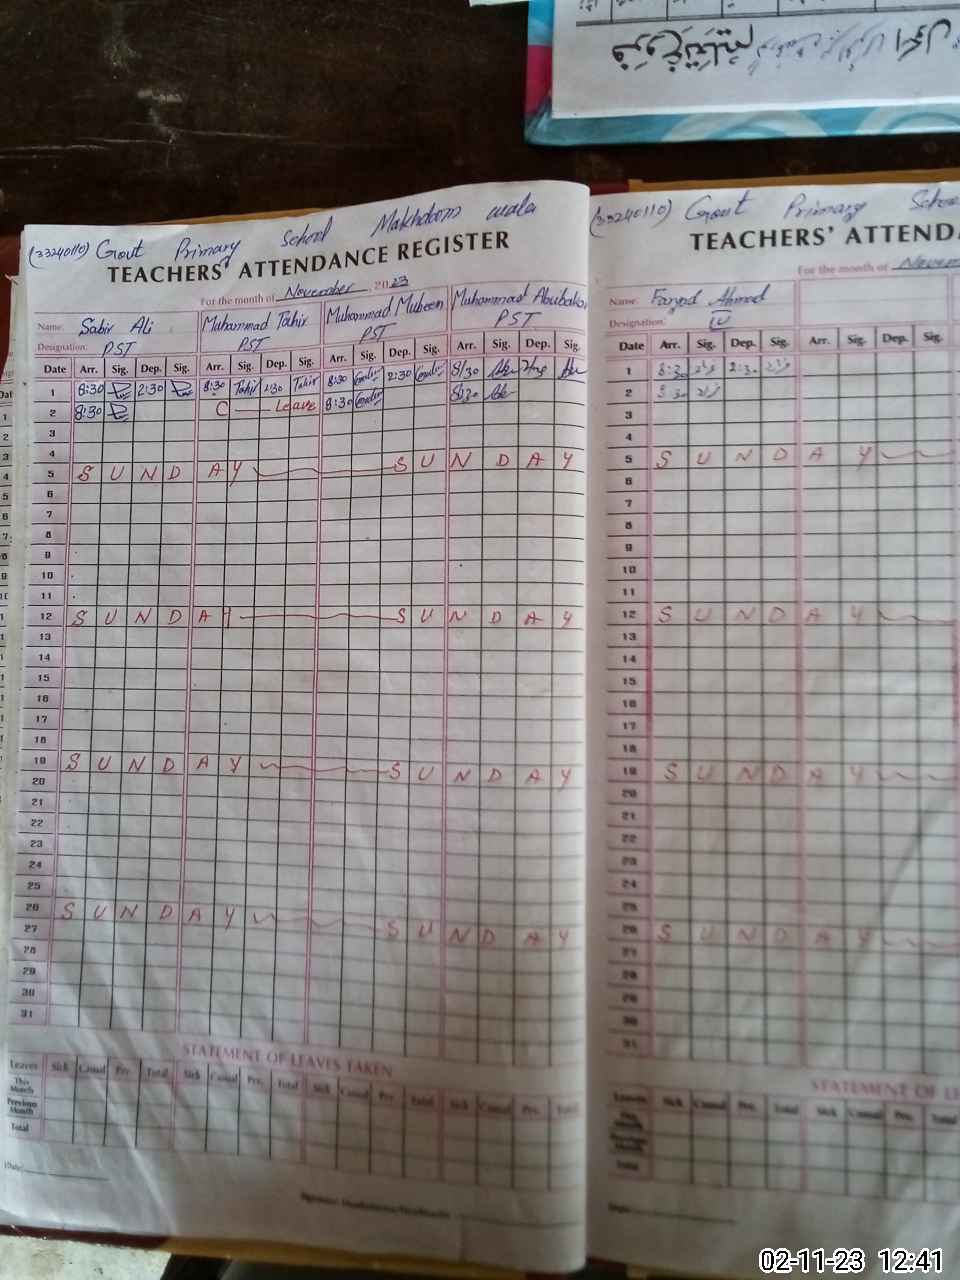 (33240110) Govt Primary School Makhdoom wala
TEACHERS' ATTENDANCE REGISTER
For the month of November, 2023
Name: Sabir Ali Muhammad Tahir Muhammad Mubeen Muhammad Abubakar
Designation: PST PST PST PST
Date Arr. Sig. Dep. Sig. Arr. Sig. Dep. Sig. Arr. Sig. Dep. Sig. Arr. Sig. Dep. Sig.
1 8:30 2:30 8:30 Tahir 2:30 Tahir 8:30 2:30 8/30
2 8:30 C Leave 8:30 8:30
3
4
5 SUNDAY SUNDAY
6
7
8
9
10
11
12 SUNDAY SUNDAY
13
14
15
16
17
18
19 SUNDAY SUNDAY
20
21
22
23
24
25
26 SUNDAY SUNDAY
27
28
29
30
31
STATEMENT OF LEAVES TAKEN
Leaves Sick Casual Prv. Total Sick Casual Prv. Total Sick Casual Prv. Total Sick Casual Prv. Total
This Month
Previous Month
Total
Date:
(33240110) Govt Primary School
TEACHERS' ATTENDA
For the month of Novem
Name: Fayad Ahmad
Designation:
Date Arr. Sig. Dep. Sig. Arr. Sig. Dep. Sig.
1 8:30 2:30
2 8:30
3
4
5 SUNDAY
6
7
8
9
10
11
12 SUNDAY
13
14
15
16
17
18
19 SUNDAY
20
21
22
23
24
25
26 SUNDAY
27
28
29
30
31
STATEMENT OF LE
Leaves Sick Casual Prv. Total Sick Casual Prv. Total
Total
Date:
02-11-23 12:41